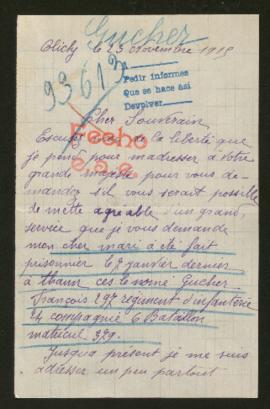 Gucher
Clichy le 23 novembre 1915
93613
Pedir informes
Que se hace así
Devolver
Cher Souverain
Excusez de la liberté que
Fecho
je prend pour m'adresser à votre
grande majesté pour vous de-
mander s'il vous serait possible
de mettre agreable d'un grand
service que je vous demande
mon cher mari à été fait
prisonnier le 7 janvier dernier
à Thann ces le nomé Gucher
François 297 régiment d'infanterie
24 compagnie 6 Bataillon
matricul 379.
Jusqua présent je me suis
adresser un peu partout